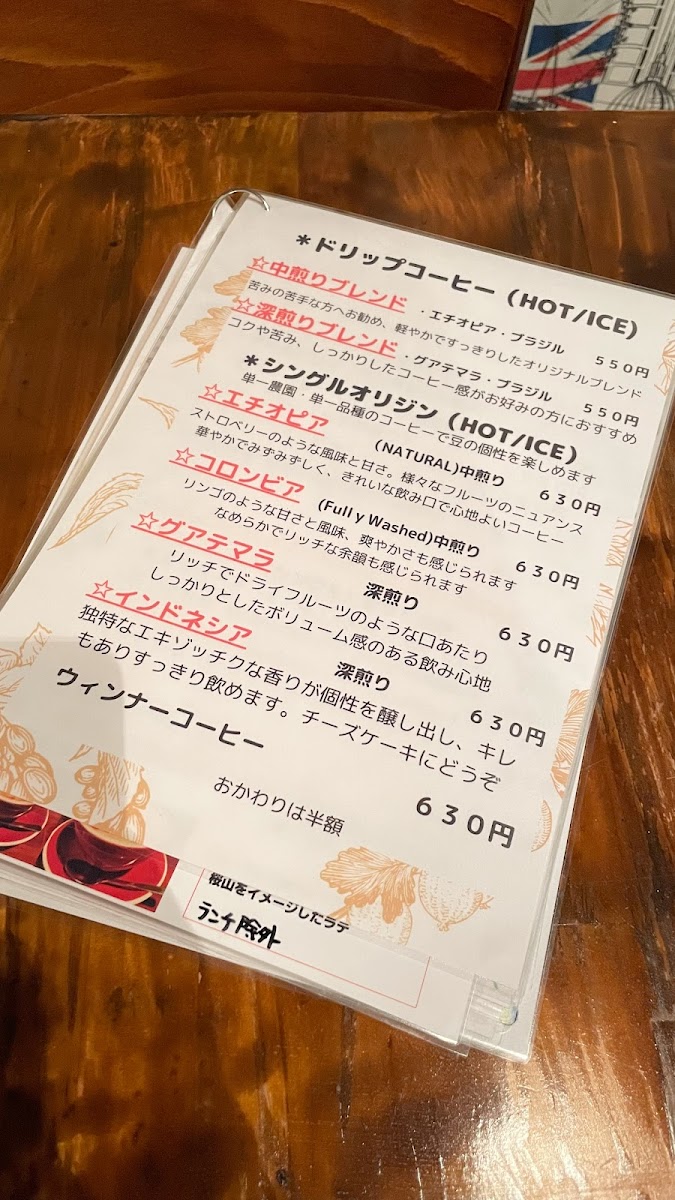 ＊ドリップコーヒー（HOT/ICE）
☆中煎りブレンド ・エチオピア・ブラジル ５５０円
苦みの苦手な方へお勧め、軽やかですっきりしたオリジナルブレンド
☆深煎りブレンド ・グアテマラ・ブラジル ５５０円
コクや苦み、しっかりしたコーヒー感がお好みの方におすすめ
＊シングルオリジン（HOT/ICE）
単一農園・単一品種のコーヒーで豆の個性を楽しめます
☆エチオピア (NATURAL)中煎り ６３０円
ストロベリーのような風味と甘さ。様々なフルーツのニュアンス
華やかでみずみずしく、きれいな飲み口で心地よいコーヒー
☆コロンビア (Full y Washed)中煎り ６３０円
リンゴのような甘さと風味、爽やかさも感じられます
なめらかでリッチな余韻も感じられます
☆グアテマラ 深煎り ６３０円
リッチでドライフルーツのような口あたり
しっかりとしたボリューム感のある飲み心地
☆インドネシア 深煎り ６３０円
独特なエキゾッチクな香りが個性を醸し出し、キレ
もありすっきり飲めます。チーズケーキにどうぞ
ウィンナーコーヒー ６３０円
おかわりは半額
桜山をイメージしたラテ
ランチ除外